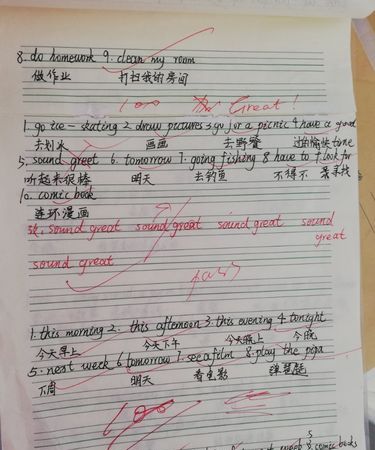 8. do homework 9. clean my room
做作业 打扫我的房间
100 Great!
1. go ice-skating 2. draw pictures 3. go for a picnic 4. have a good
去划冰 画画 去野餐 过的愉快 time
5. sound greet 6. tomorrow 7. going fishing 8. have to 9. look for
听起来很棒 明天 去钓鱼 不得不 寻找
10. comic book
连环漫画
sound great sound great sound great sound
great
sound great
1. this morning 2. this afternoon 3. this evening 4. tonight
今天早上 今天下午 今天晚上 今晚
5. next week 6. tomorrow 7. see a film 8. play the pipa
下周 明天 看电影 弹琵琶
100
5
8. comic books